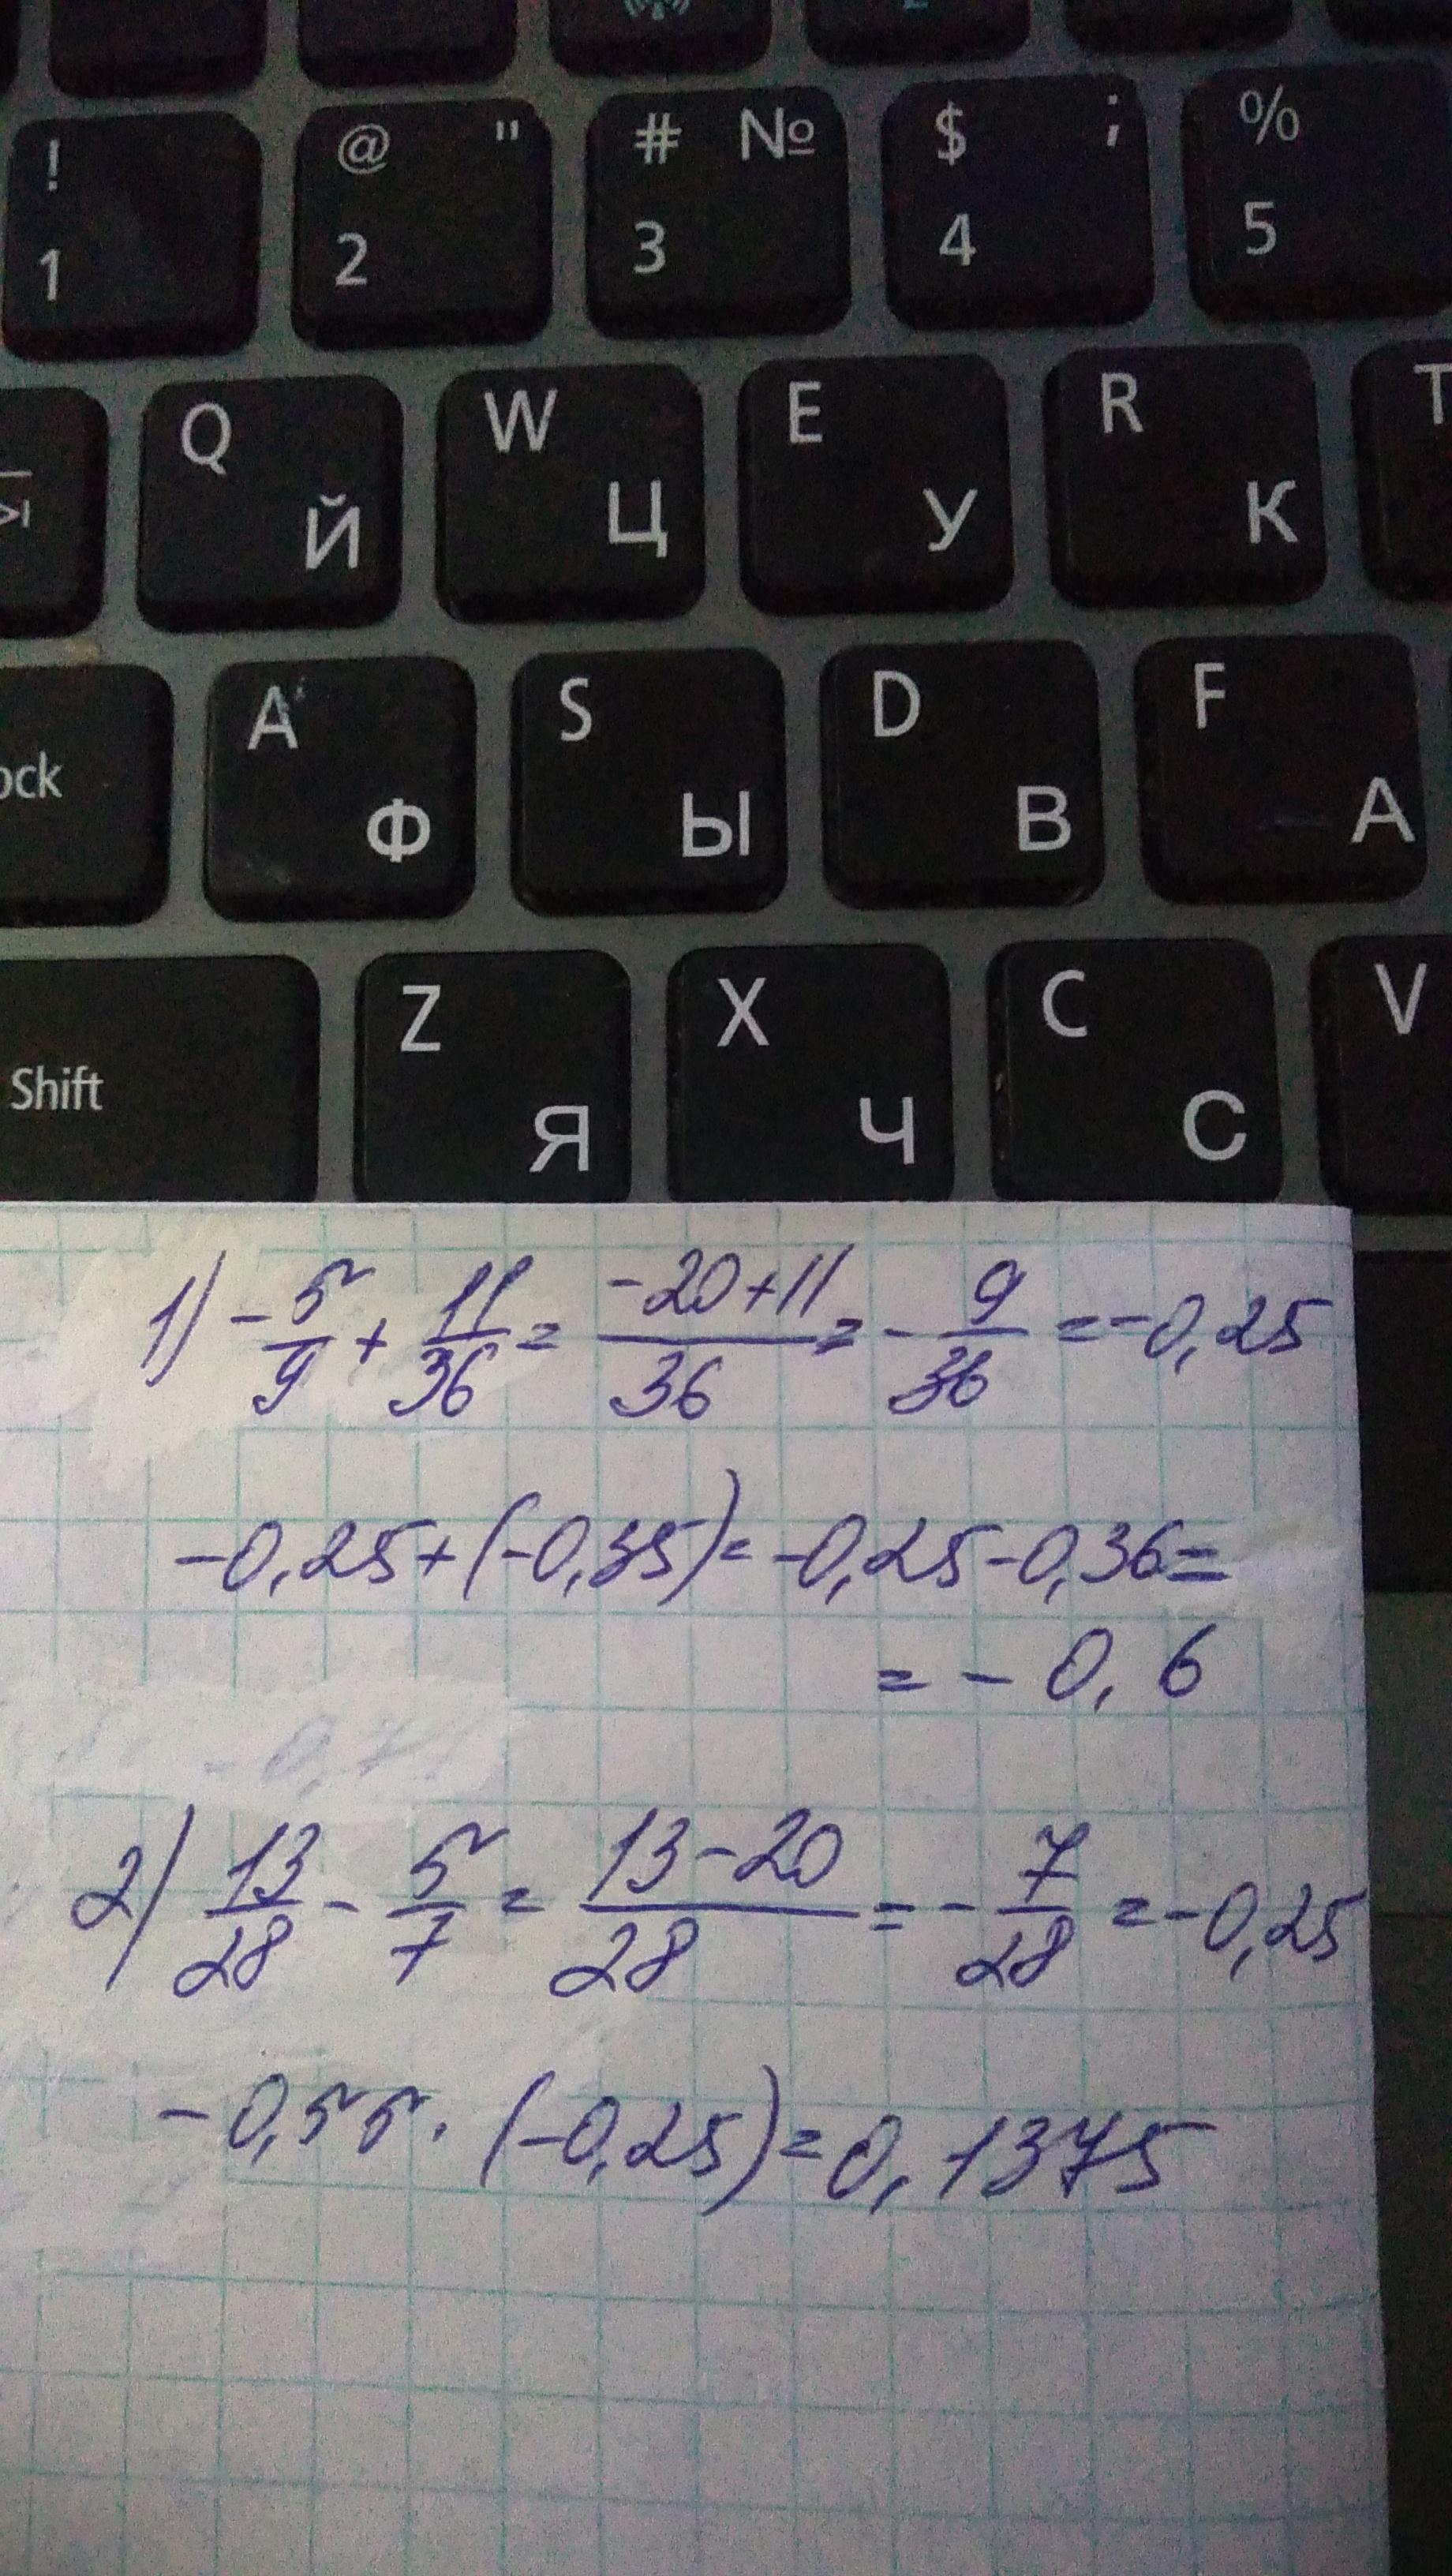 ! @ " # № $ ; %
1 2 3 4 5
Q W E R T
Й Ц У К
A S D F
ock Ф Ы В А
Z X C V
Shift Я Ч С
1) -5/9 + 11/36 = (-20+11)/36 = -9/36 = -0,25
-0,25+(-0,35)= -0,25-0,36=
= - 0,6
2) 13/28 - 5/7 = (13-20)/28 = -7/28 = -0,25
-0,55 · (-0,25)=0,1375